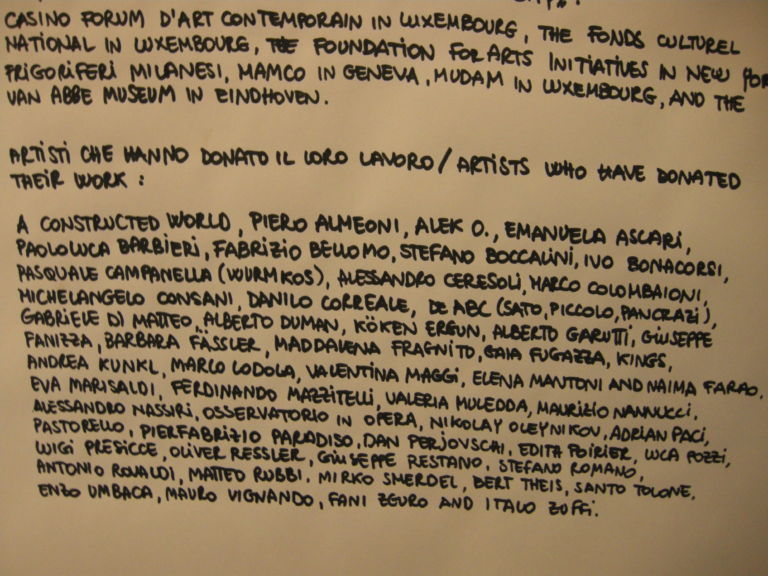 CASINO FORUM D'ART CONTEMPORAIN IN LUXEMBOURG, THE FONDS CULTUREL
NATIONAL IN LUXEMBOURG, THE FOUNDATION FOR ARTS INITIATIVES IN NEW
FRIGORIFERI MILANESI, MAMCO IN GENEVA, MUDAM IN LUXEMBOURG, AND THE
VAN ABBE MUSEUM IN EINDHOVEN.
ARTISTI CHE HANNO DONATO IL LORO LAVORO / ARTISTS WHO HAVE DONATED
THEIR WORK :
A CONSTRUCTED WORLD, PIERO ALMEONI, ALEK O., EMANUELA ASCARI,
PAOLOLUCA BARBIERI, FABRIZIO BELLOMO, STEFANO BOCCALINI, IVO BONACORSI,
PASQUALE CAMPANELLA (WURMKOS), ALESSANDRO CERESOLI, MARCO COLOMBAIONI,
MICHELANGELO CONSANI, DANILO CORREALE, DE ABC (SATO, PICCOLO, PANCRAZI),
GABRIELE DI MATTEO, ALBERTO DUMAN, KÖKEN ERGUN, ALBERTO GARUTTI, GIUSEPPE
FANIZZA, BARBARA FÄSSLER, MADDALENA FRAGNITO, GAIA FUGAZZA, KINGS,
ANDREA KUNKL, MARCO LODOLA, VALENTINA MAGGI, ELENA MANTONI AND NAIMA FARAO,
EVA MARISALDI, FERDINANDO MAZZITELLI, VALERIA MULEDDA, MAURIZIO NANNUCCI,
ALESSANDRO NASSIRI, OSSERVATORIO IN OPERA, NIKOLAY OLEYNIKOV, ADRIAN PACI,
PASTORELLO, PIERFABRIZIO PARADISO, DAN PERJOVSCHI, EDITH POIRIER, LUCA POZZI,
LUIGI PRESICCE, OLIVER RESSLER, GIUSEPPE RESTANO, STEFANO ROMANO,
ANTONIO ROVALDI, MATTEO RUBBI, MIRKO SMERDEL, BERT THEIS, SANTO TOLONE,
ENZO UMBACA, MAURO VIGNANDO, FANI ZGURO AND ITALO ZUFFI.